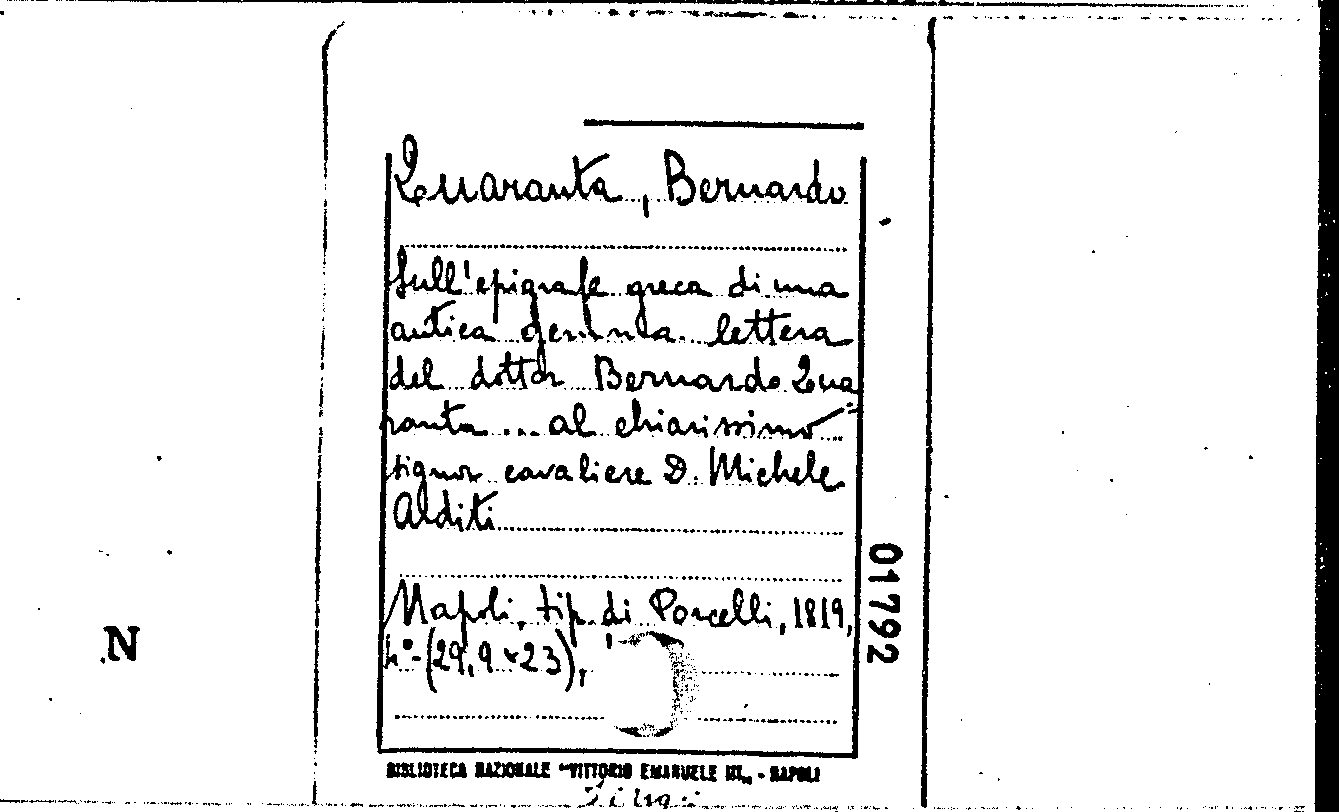 Quaranta, Bernardo
Sull'epigrafe greca di una
antica gemma lettera
del dottor Bernardo Qua
ranta ... al chiarissimo
signor cavaliere D. Michele
Alditi
Napoli, tip. di Porcelli, 1819,
4°-(29,9×23),
01792
N
BIBLIOTECA NAZIONALE "VITTORIO EMANUELE III„ - NAPOLI